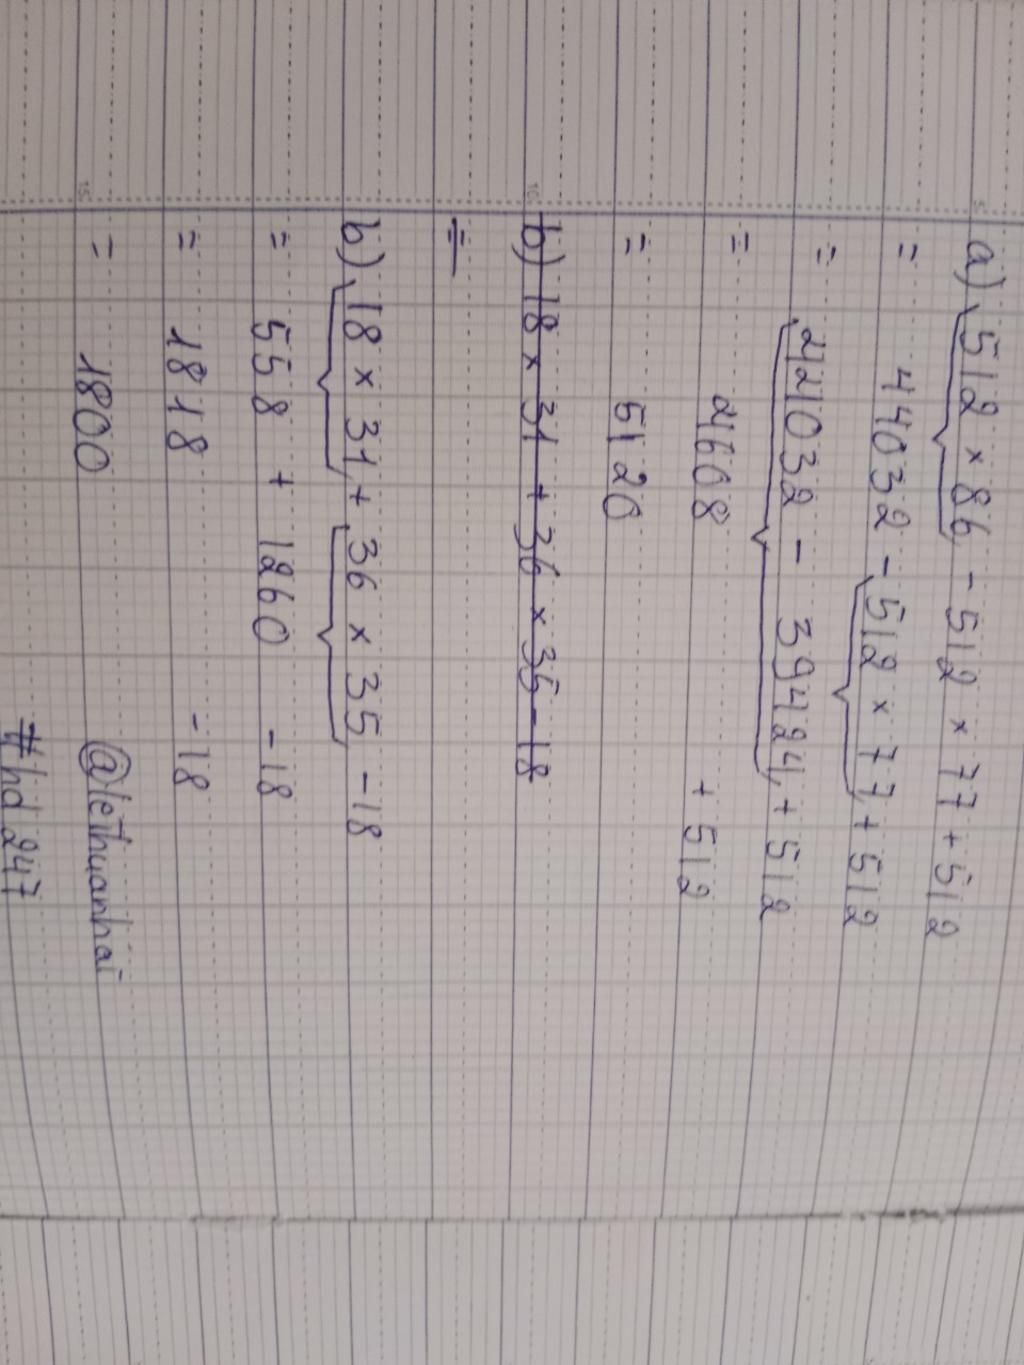 a) 512 × 86 - 512 × 77 + 512
= 44032 - 512 × 77 + 512
= 44032 - 39424 + 512
= 4608 + 512
= 5120
b) 18 × 31 + 36 × 35 - 18
=
b) 18 × 31 + 36 × 35 - 18
= 558 + 1260 - 18
= 1818 - 18
= 1800
@lethuanhai
#hd247